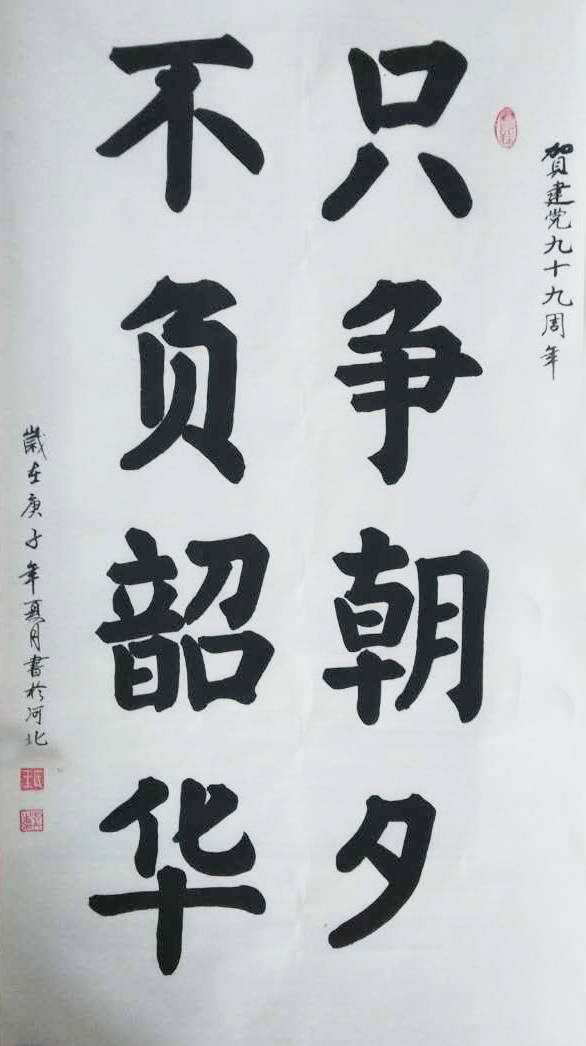 贺建党九十九周年
只争朝夕
不负韶华
嵗在庚子年夏月書於河北